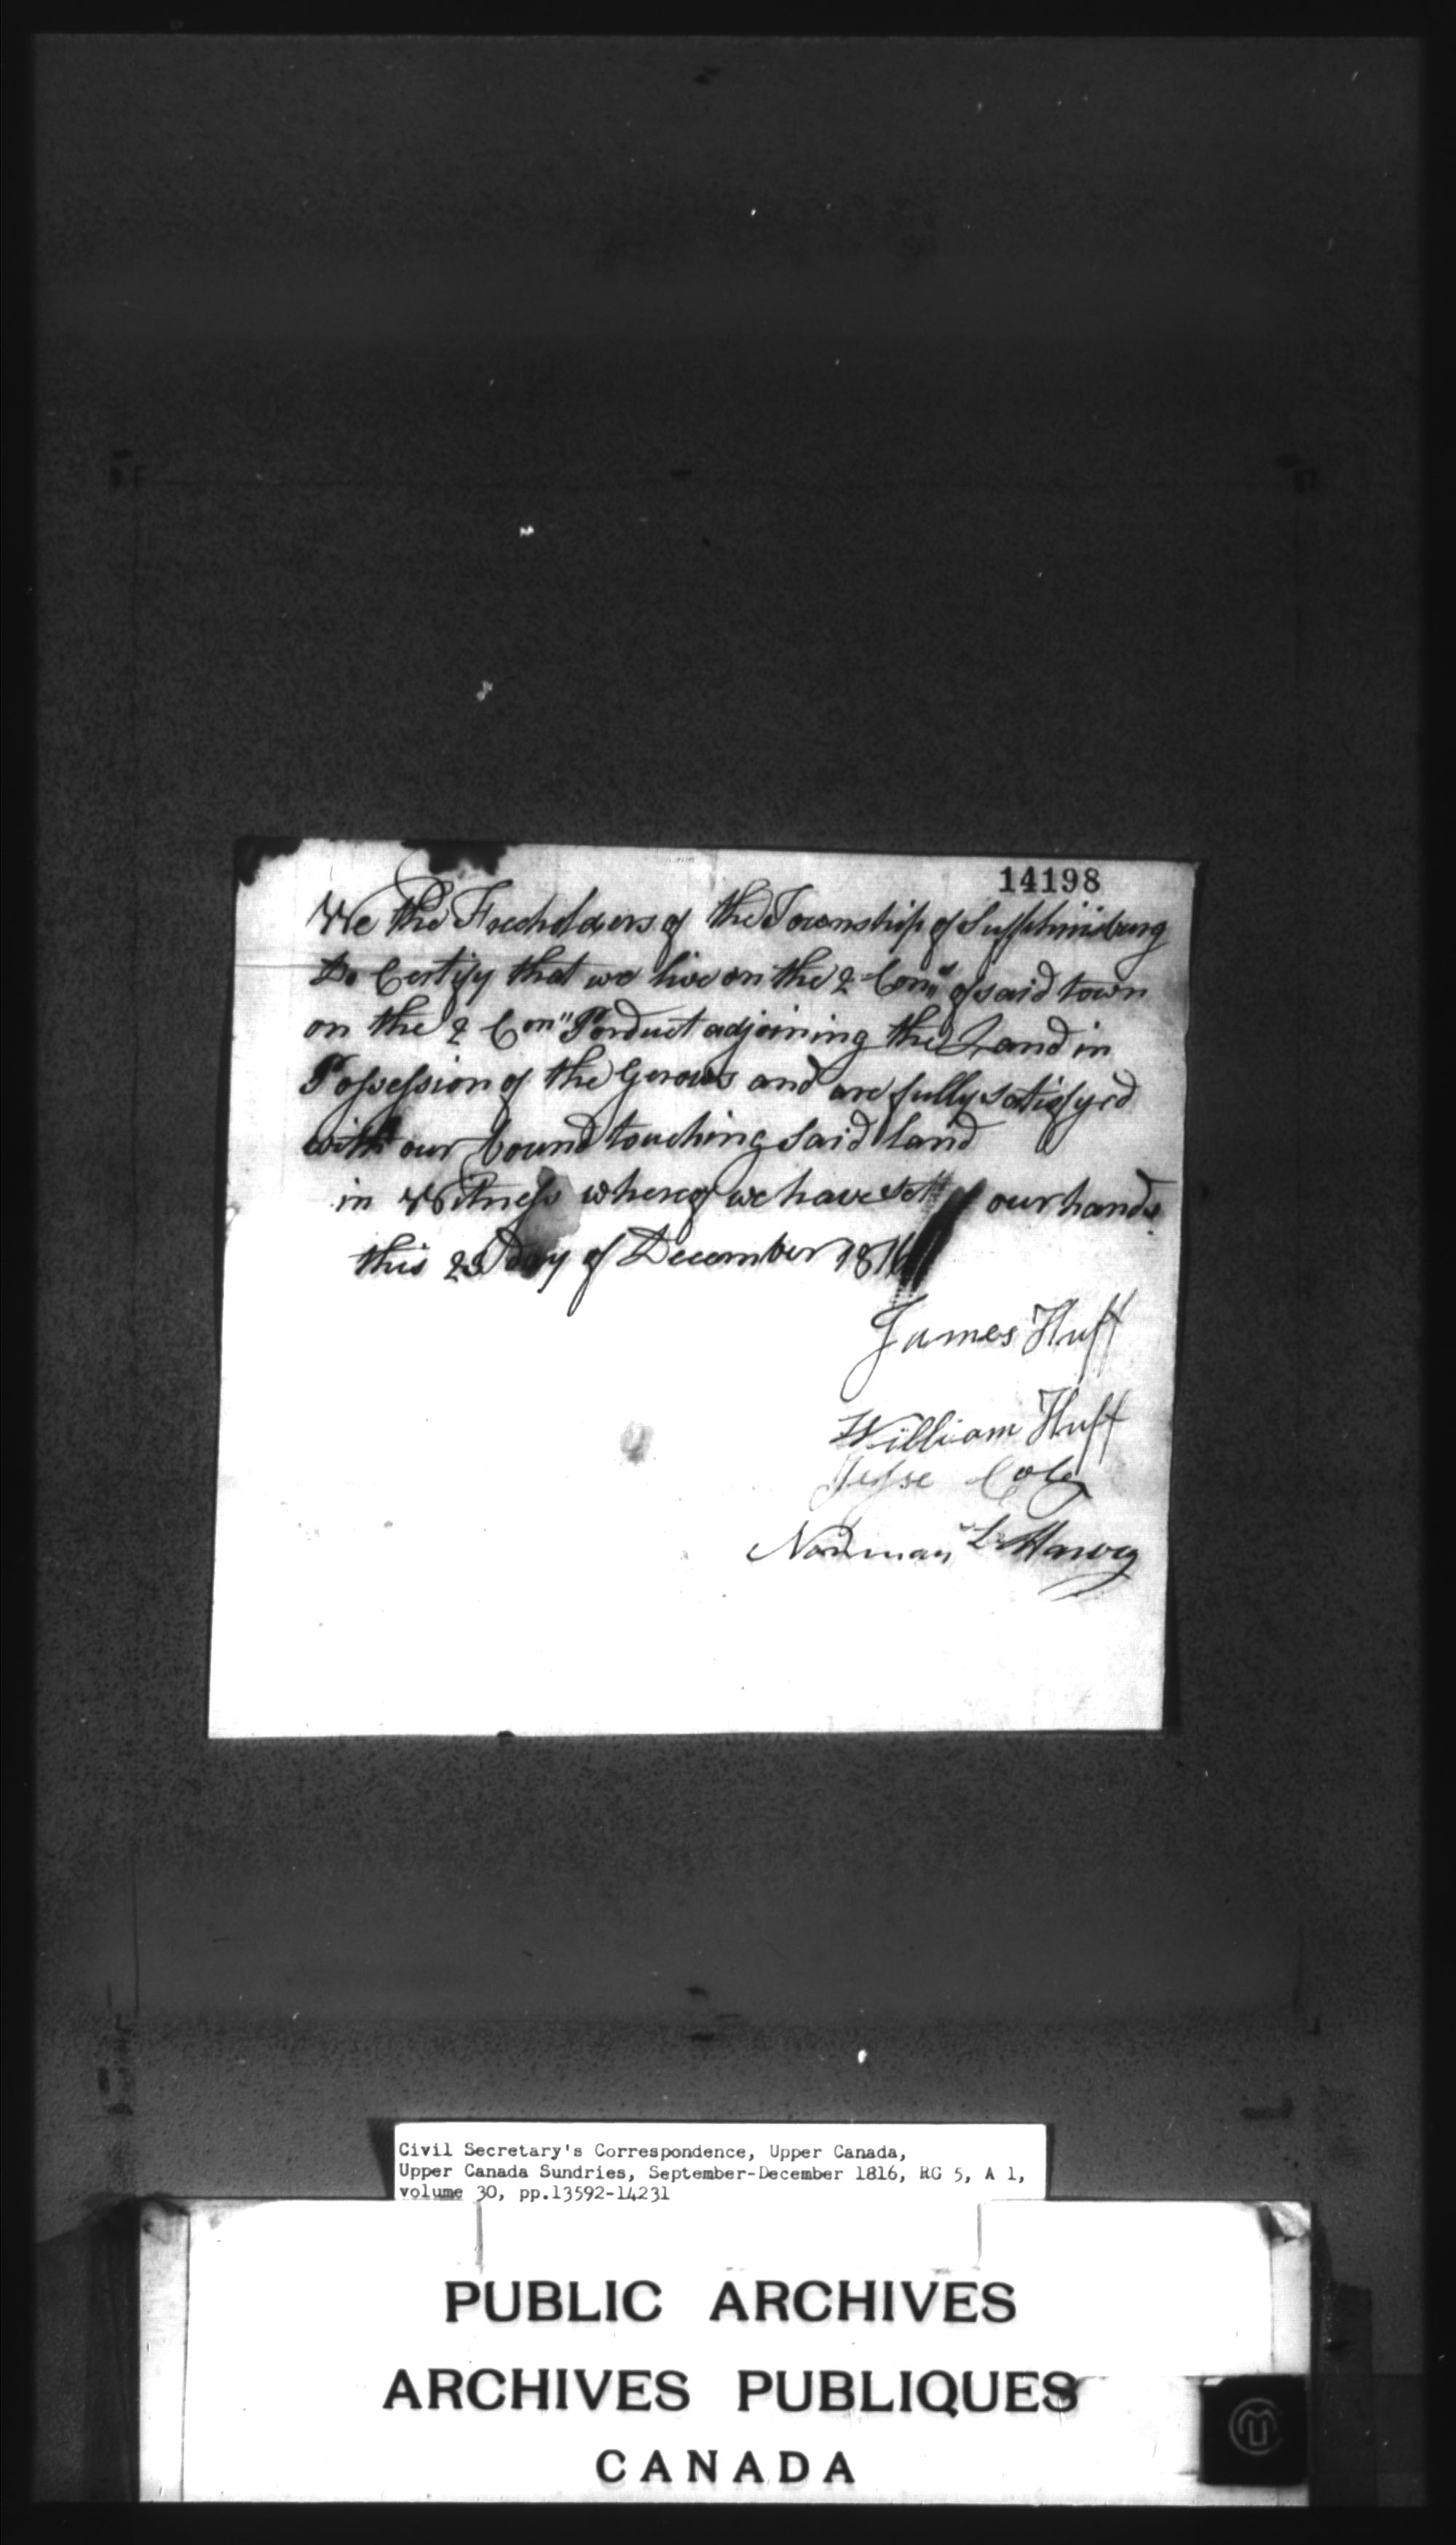 14198
We the Freeholders of the Township of Suffhinisburg
Do Certify that we live on the 2 Conn of said town
on the 2 Con" adjoining the Land in
Possession of the Gerows and are fully satisfyed
with our bound touching said land
in Witness whereof we have sett our hands
this 23 day of December 1816
James Huff
William Huff
Jesse Cole
Norman
Civil Secretary's Correspondence, Upper Canada,
Upper Canada Sundries, September-December 1816, RG 5, A 1,
volume 30, pp.13592-14231
PUBLIC ARCHIVES
ARCHIVES PUBLIQUES
CANADA